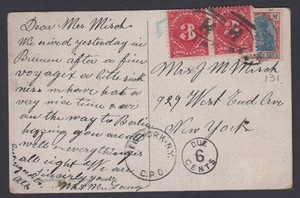 Dear Mrs Misch
We arived yesterday in
Bremen after a fine
voyage & a little sick
ness have had a
very nice time & are
on the way to Berlin
hoping you are
well & everything is
all right. We are
Sincerely yours
Mrs M. Lang
Mrs J M Misch
929 West End Ave
New York
131
NEW YORK, N.Y.
C.P.O.
DUE
6
CENTS
3
3